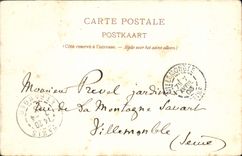 CARTE POSTALE
POSTKAART
(Côté réservé à l'adresse. — Zijde voor het adres alleen.)
Monsieur Prevel jardinier
Rue de la Montagne Savart
Villemomble
(Seine)